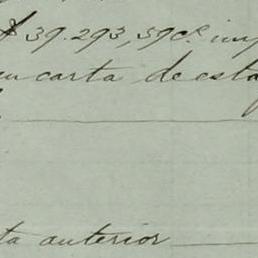 $ 39.293,59cs. imp
su carta de esta
ta anterior